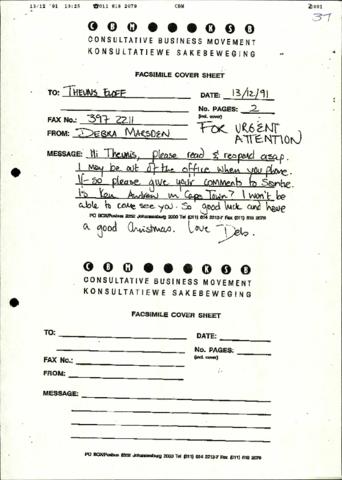 13/12 '91 13:25 ☎011 618 2079 CBM 001
37
C B M K S B
CONSULTATIVE BUSINESS MOVEMENT
KONSULTATIEWE SAKEBEWEGING
FACSIMILE COVER SHEET
TO: THEUNIS ELOFF DATE: 13/12/91
No. PAGES: 2
(incl. cover)
FAX No.: 397 2211
FOR URGENT ATTENTION
FROM: DEBRA MARSDEN
MESSAGE: Hi Theunis, please read & respond asap.
I may be out of the office when you phone.
If so please give your comments to
Ken Andrew in Cape Town? I won't be
able to come see you. So good luck and have
PO BOX/Posbus Johannesburg 2000 Tel (011) 614 2213-7 Fax (011) 618 2079
a good Christmas. Love Deb.
C B M K S B
CONSULTATIVE BUSINESS MOVEMENT
KONSULTATIEWE SAKEBEWEGING
FACSIMILE COVER SHEET
TO: DATE:
No. PAGES:
(incl. cover)
FAX No.:
FROM:
MESSAGE:
PO BOX/Posbus Johannesburg 2000 Tel (011) 614 2213-7 Fax (011) 618 2079